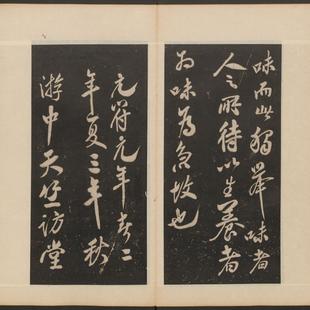 味而此獨舉味者
人之所待以生養者
而味為急故也
元符元年春二
年夏三年秋
游中天
訪堂